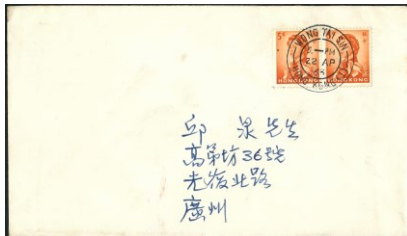 WONG TAI SIN
5 - PM
22 AP
HONG KONG
5¢
HONG KONG
邱 泉先生
高第坊36號
光復北路
廣州